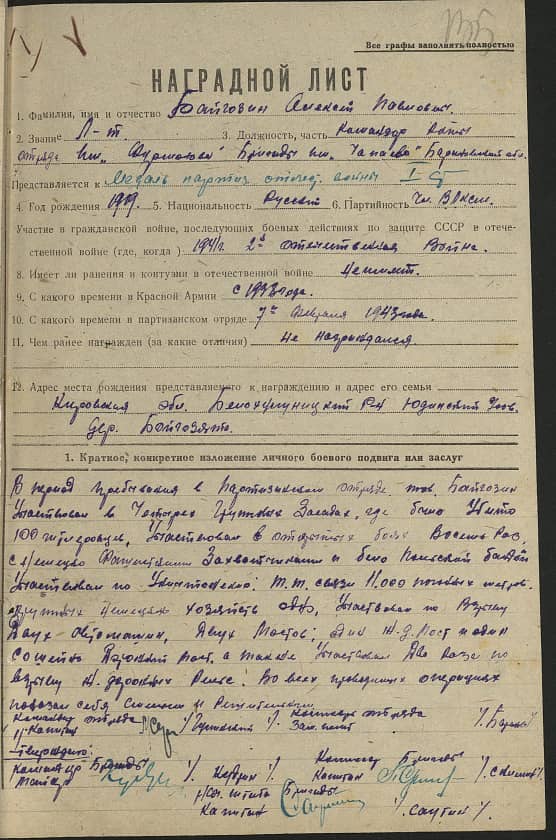 Все графы заполнять полностью
НАГРАДНОЙ ЛИСТ
1. Фамилия, имя и отчество Байгозин Алексей Павлович.
2. Звание Л-т. 3. Должность, часть командир роты
отряда им. Бригады им. "Чапаева" Барановичской обл.
Представляется к Медаль партиз отечест. войны I ст
4. Год рождения 1919. 5. Национальность Русский 6. Партийность чл. ВЛКСМ.
Участие в гражданской войне, последующих боевых действиях по защите СССР в отече-
ственной войне (где, когда) 1941г. отечественная война.
8. Имеет ли ранения и контузии в отечественной войне Не имеет.
9. С какого времени в Красной Армии с 1938 года.
10. С какого времени в партизанском отряде 7го февраля 1943 года.
11. Чем ранее награжден (за какие отличия) не награждался
12. Адрес места рождения представляемого к награждению и адрес его семьи
Кировская обл. Белохолуницкий р-н Юдинский
дер. Байгозято.
1. Краткое, конкретное изложение личного боевого подвига или заслуг
В период пребывания в Партизанском отряде тов. Байгозин
участвовал в Четырех Засадах, где было Убито
100 гитлеровцев, Участвовал в открытых боях Восемь раз,
с Немецко Фашистскими Захватчиками и бело Польской бандой
Участвовал по Уничтожению: Т.Т. связи 11.000 метров.
Немецких хозяйств Участвовал по Взрыву
Двух Автомашин, Двух Мостов; один Ж.Д. Мост и один
Мост. а также Участвовал Два раза по
взрыву ж. дорожных Рельс. Во всех операциях
показал себя Смелым и Решительным
Командир отряда Комиссар отряда
Капитан
Утверждаю:
Командир Бригады Комиссар Бригады
Майор Капитан
Нач. штаба Бригады
Капитан /. Саутин /.